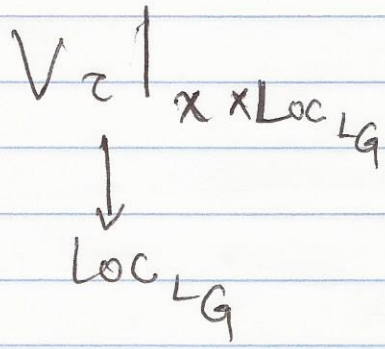 V_τ |_{x × Loc_{^LG}}
↓
Loc_{^LG}